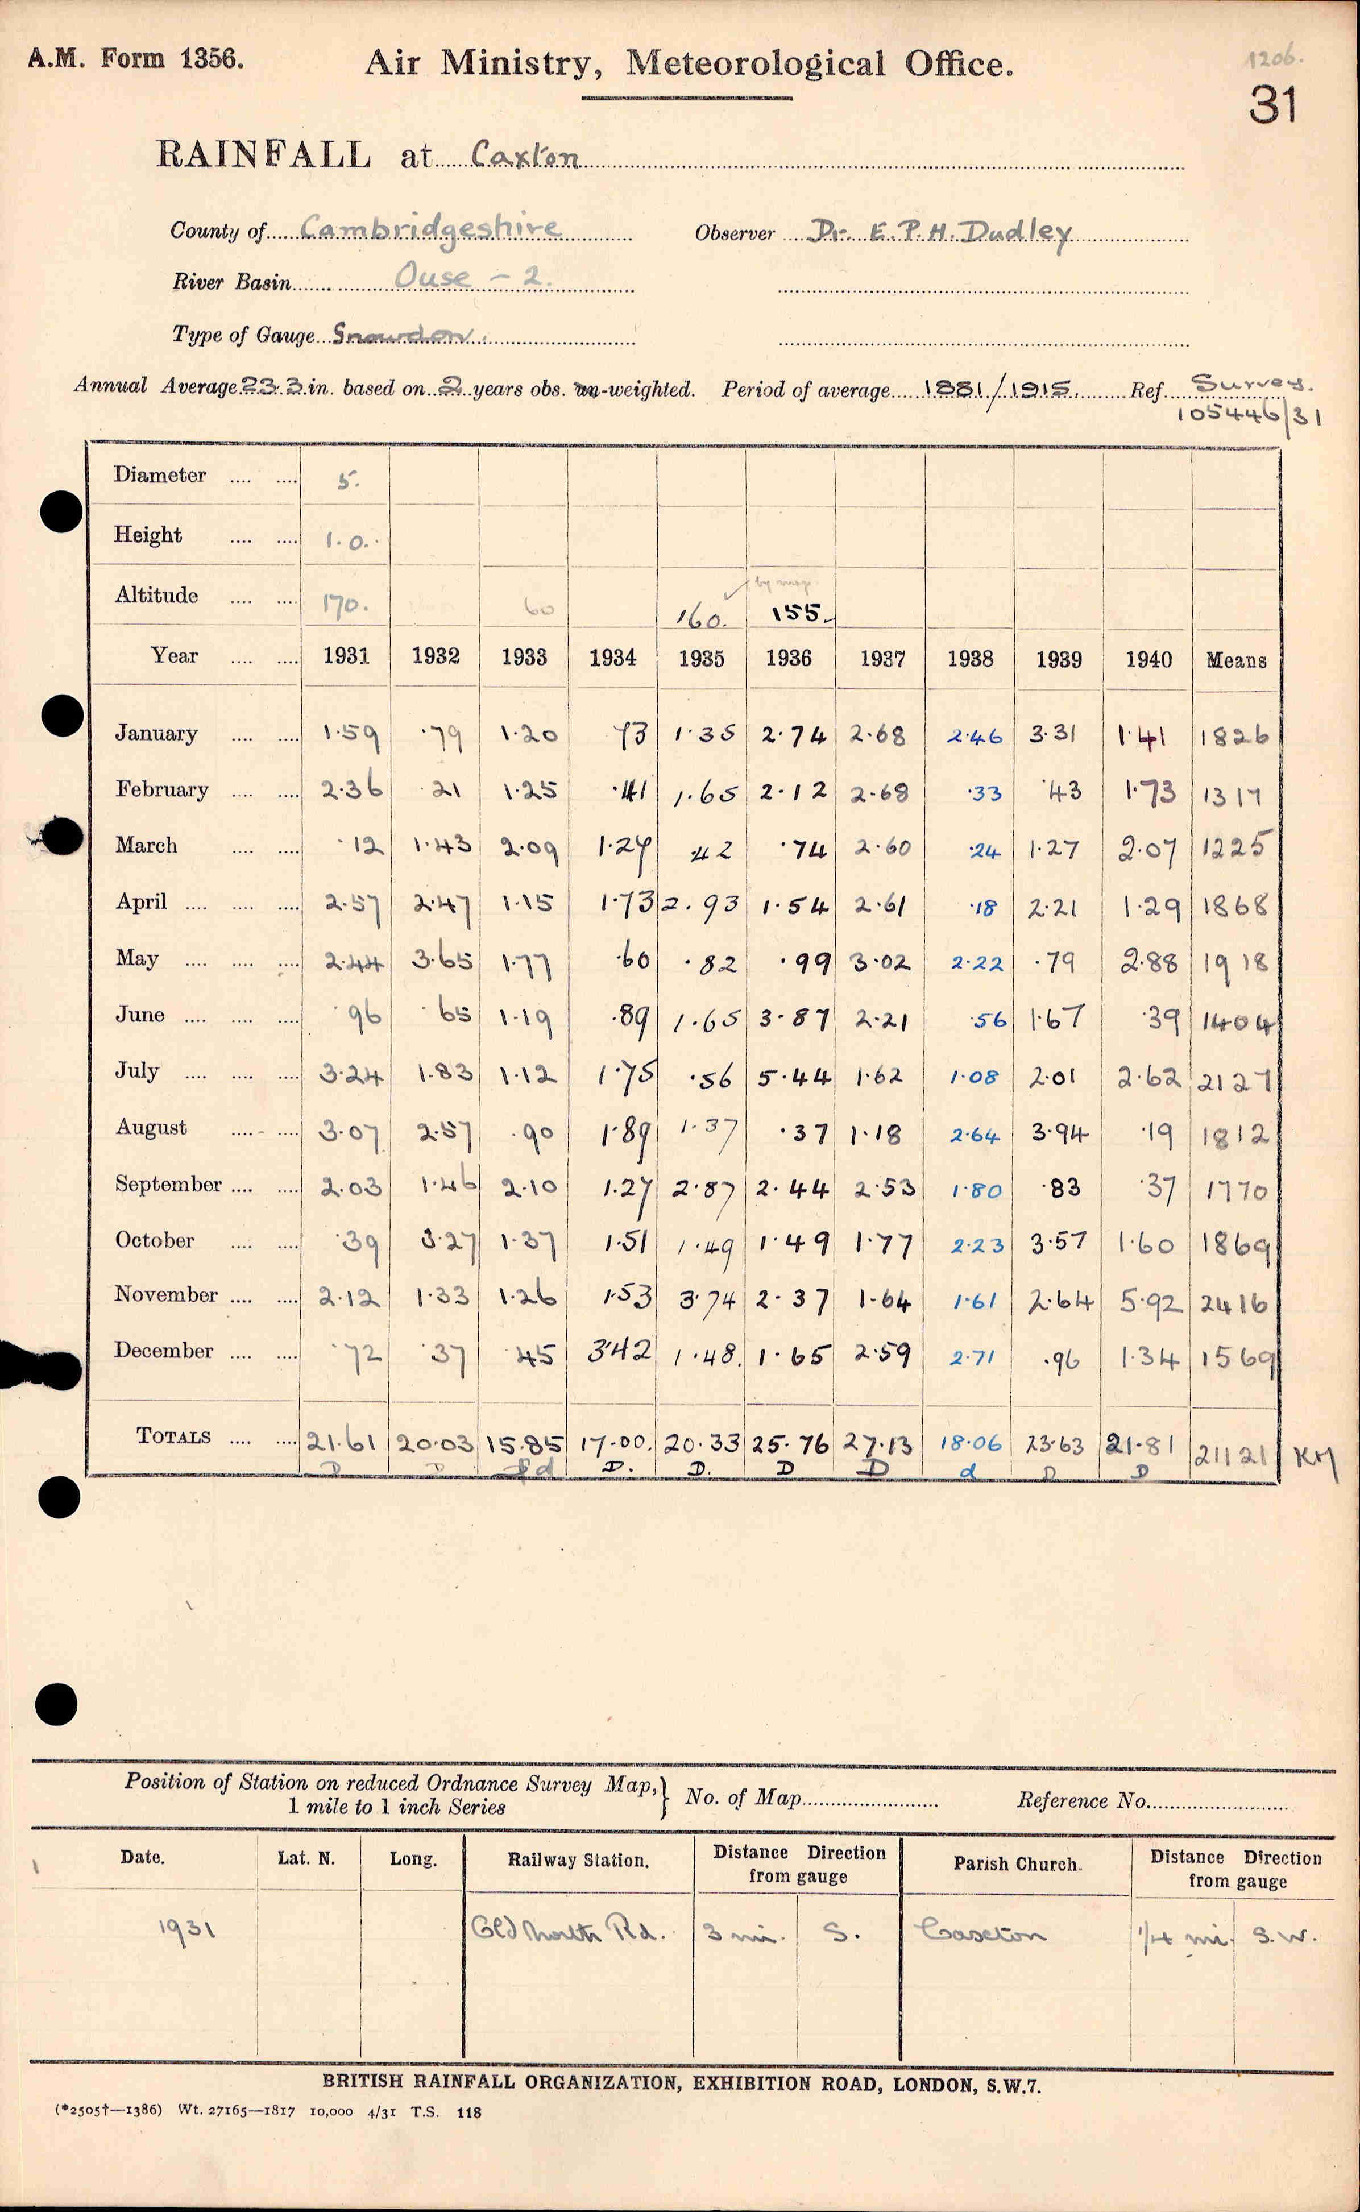 A.M. Form 1356. Air Ministry, Meteorological Office. 1206.
31
RAINFALL at Caxton
County of Cambridgeshire Observer Dr. E.P.H. Dudley
River Basin Ouse - 2.
Type of Gauge Snowdon.
Annual Average 23.3 in. based on 2 years obs. un-weighted. Period of average 1881/1915. Ref. Survey.
105446/31
Diameter .... .... 5.
Height .... .... 1.0.
by map
Altitude .... .... 170. 60 160. 155.
Year .... .... 1931 1932 1933 1934 1935 1936 1937 1938 1939 1940 Means
January .... .... 1.59 .79 1.20 .73 1.35 2.74 2.68 2.46 3.31 1.41 1826
February .... .... 2.36 .21 1.25 .41 1.65 2.12 2.68 .33 .43 1.73 1317
March .... .... .12 1.43 2.09 1.27 .42 .74 2.60 .24 1.27 2.07 1225
April .... .... .... 2.57 2.47 1.15 1.73 2.93 1.54 2.61 .18 2.21 1.29 1868
May .... .... .... 2.44 3.65 1.77 .60 .82 .99 3.02 2.22 .79 2.88 1918
June .... .... .... .96 .65 1.19 .89 1.65 3.87 2.21 .56 1.67 .39 1404
July .... .... .... 3.24 1.83 1.12 1.75 .56 5.44 1.62 1.08 2.01 2.62 2127
August .... .... 3.07 2.57 .90 1.89 1.37 .37 1.18 2.64 3.94 .19 1812
September .... .... 2.03 1.46 2.10 1.27 2.87 2.44 2.53 1.80 .83 .37 1770
October .... .... .39 3.27 1.37 1.51 1.49 1.49 1.77 2.23 3.57 1.60 1869
November .... .... 2.12 1.33 1.26 1.53 3.74 2.37 1.64 1.61 2.64 5.92 2416
December .... .... .72 .37 .45 3.42 1.48 1.65 2.59 2.71 .96 1.34 1569
TOTALS .... .... 21.61 20.03 15.85 17.00. 20.33 25.76 27.13 18.06 23.63 21.81 21121 KM
D D d D. D. D D d D D
Position of Station on reduced Ordnance Survey Map,} No. of Map Reference No.
1 mile to 1 inch Series
Date. Lat. N. Long. Railway Station. Distance Direction from gauge Parish Church. Distance Direction from gauge
1931 Old North Rd. 3 mi. S. Caxton 1/4 mi. S.W.
BRITISH RAINFALL ORGANIZATION, EXHIBITION ROAD, LONDON, S.W.7.
(*2505†—1386) Wt. 27165—1817 10,000 4/31 T.S. 118